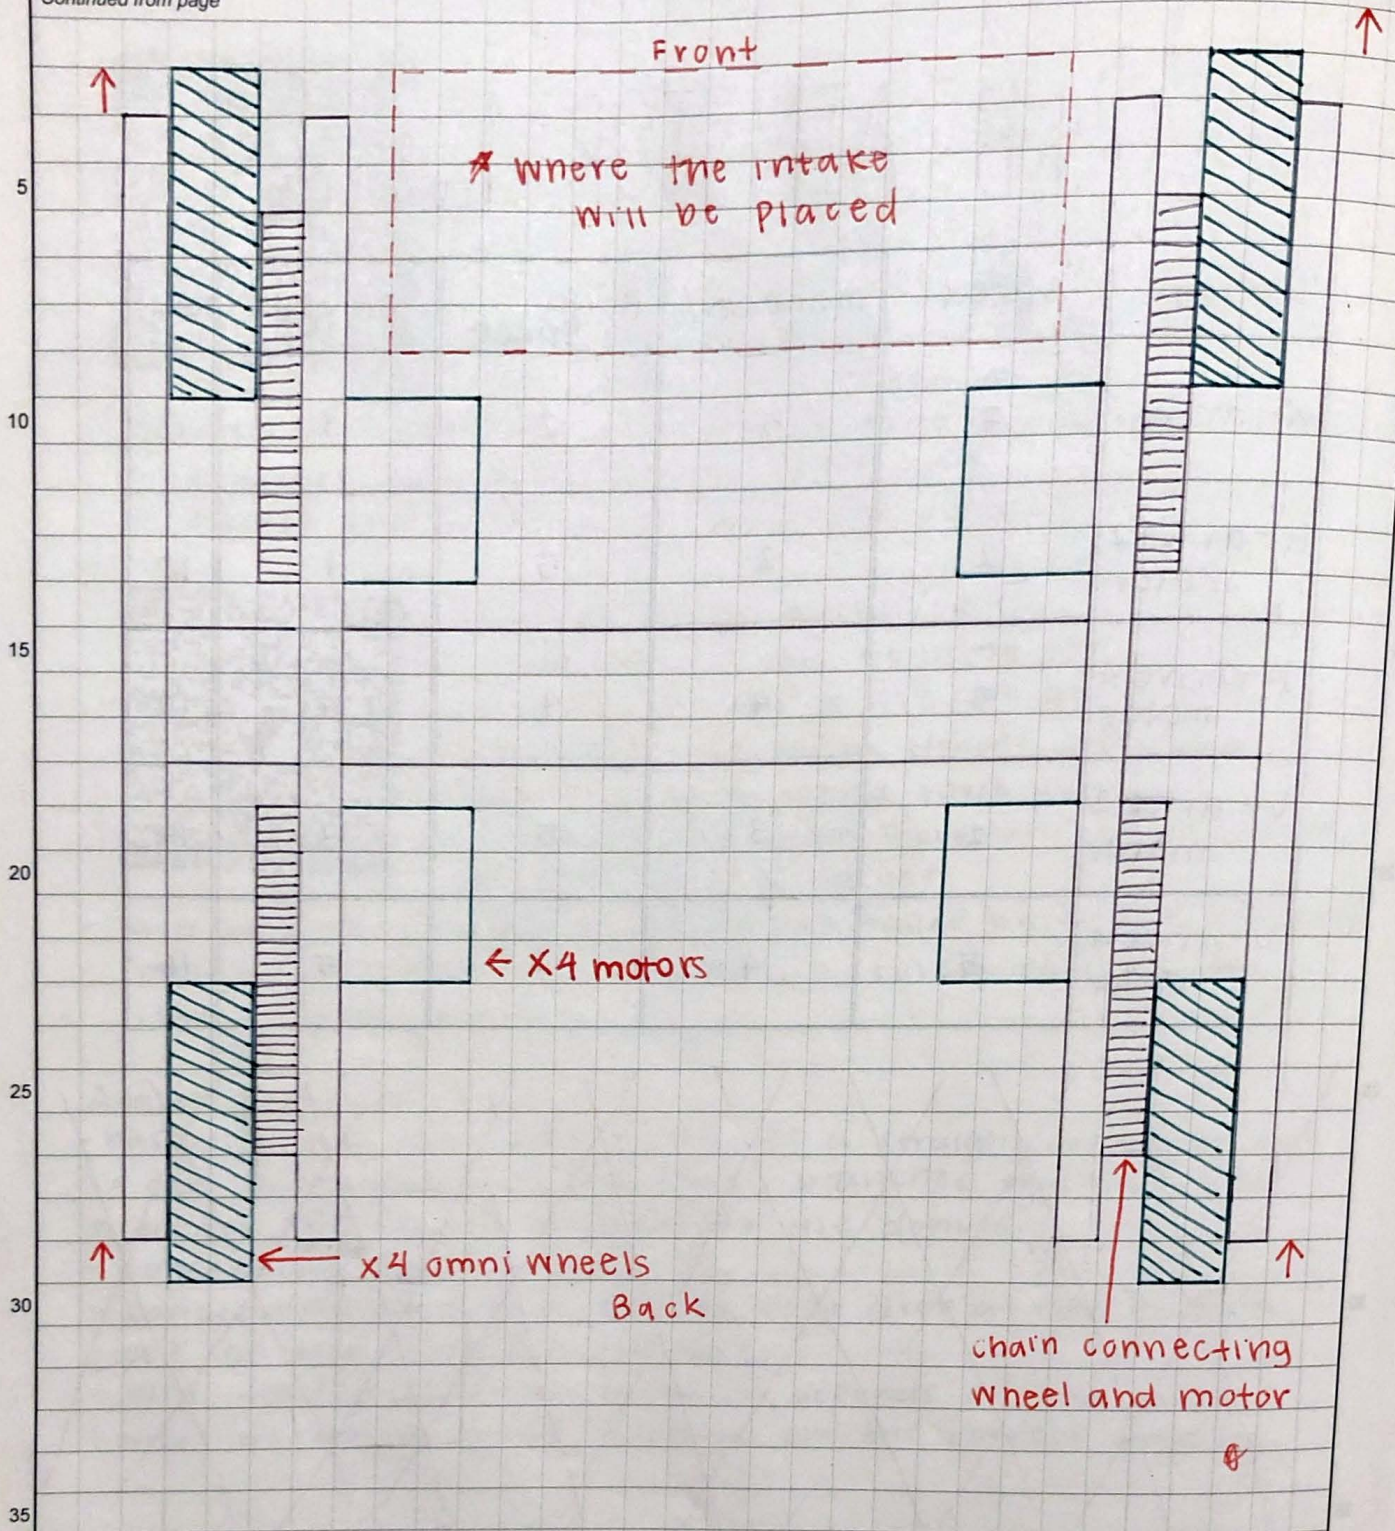 Continued from page
Front
* where the intake
will be placed
5
10
15
20
← x4 motors
25
← x4 omni wheels
Back
30
chain connecting
wheel and motor
35